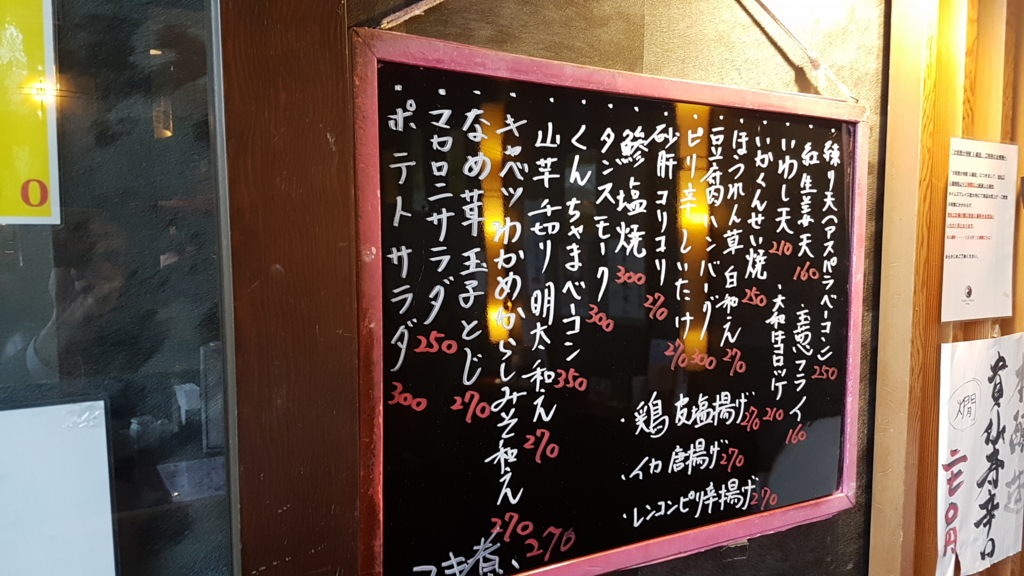 ・練り天(アスパラベーコン) 250
・紅生姜天 160
・玉葱フライ 160
・いわし天 210
・大和牛コロッケ 210
・いかくんせい焼 250
・ほうれん草白和え 270
・豆腐ハンバーグ 300
・ピリ辛しいたけ 270
・砂肝コリコリ 270
・鯵塩焼 300
・タンスモーク 300
・くんちゃまベーコン 350
・山芋千切り明太和え 270
・キャベツわかめからしみそ和え 270
・なめ茸玉子とじ 270
・マカロニサラダ 250
・ポテトサラダ 300
・鶏皮塩揚げ 270
・イカ唐揚げ 270
・レンコンピリ辛揚げ 270
270
燗
辛口
二七〇円
O